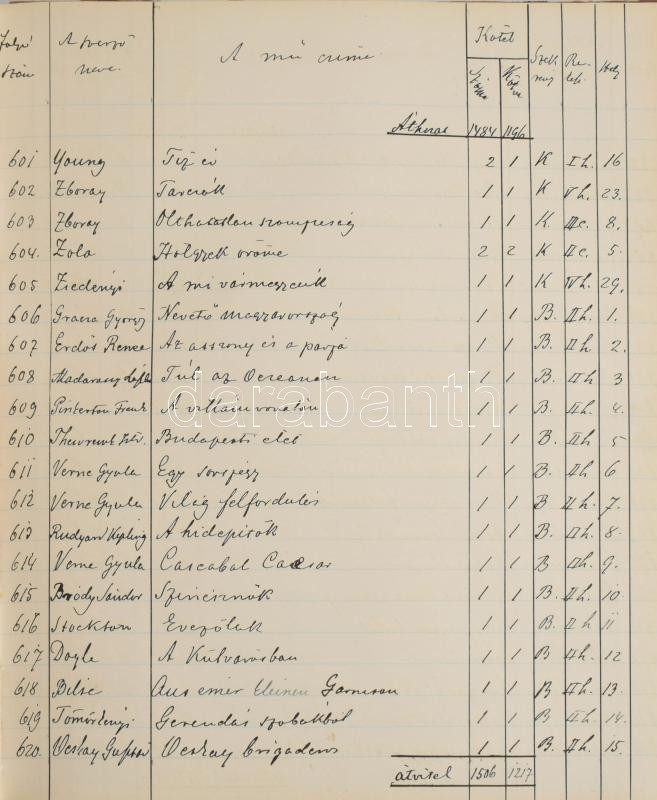 Folyó szám A szerző neve. A mű címe Kötet Száma Szek rény Hely
Áthozat 1484 1196
601 Young Tíz év 2 1 K I h. 16
602 Zboray 1 1 K V h. 23.
603 Zboray Olthatatlan szomjúság 1 1 K. III c. 8.
604. Zola Hölgyek öröme 2 2 K II c. 5.
605 A mi vármegyénk 1 1 K IV h. 29.
606 György Nevető Magyarország 1 1 B. II h. 1.
607 Erdős Renée Az asszony és a párja 1 1 B. II h. 2.
608 Túl az Oceanon 1 1 B. II h 3
609 A villám vonaton 1 1 B. II h. 4.
610 Budapesti élet 1 1 B. II h. 5
611 Verne Gyula Egy sorsjegy 1 1 B. II h 6
612 Verne Gyula Világ felfordulás 1 1 B II h. 7.
613 Rudyard Kipling A hidépitők 1 1 B. II h. 8.
614 Verne Gyula Cascabel Caesar 1 1 B II h. 9.
615 Bródy Sándor Szinésznők 1 1 B. II h. 10.
616 Stockton Evezőlak 1 1 B. II h 11
617 Doyle A Külvárosban 1 1 B II h. 12
618 Bilse Aus einer kleinen Garnison 1 1 B II h. 13.
619 Tömörkényi Gerendás szobákból 1 1 B II h. 14.
620. Vészay brigaderos 1 1 B. II h. 15.
átvitel 1506 1217
darabanth